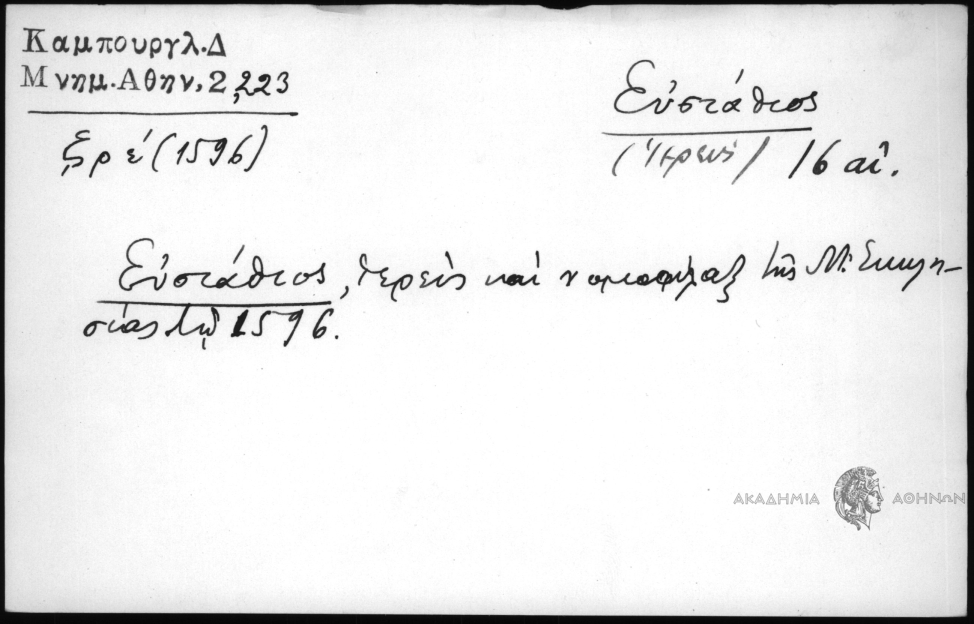 Καμπουργλ.Δ
Μνημ.Αθην.2,223
Εὐστάθιος
(1596)
(ἱερεὺς) 16 αἰ.
Εὐστάθιος, ἱερεὺς καὶ νομοφύλαξ τῆς Μ. Ἐκκλη-
σίας τῷ 1596.
ΑΚΑΔΗΜΙΑ ΑΘΗΝΩΝ